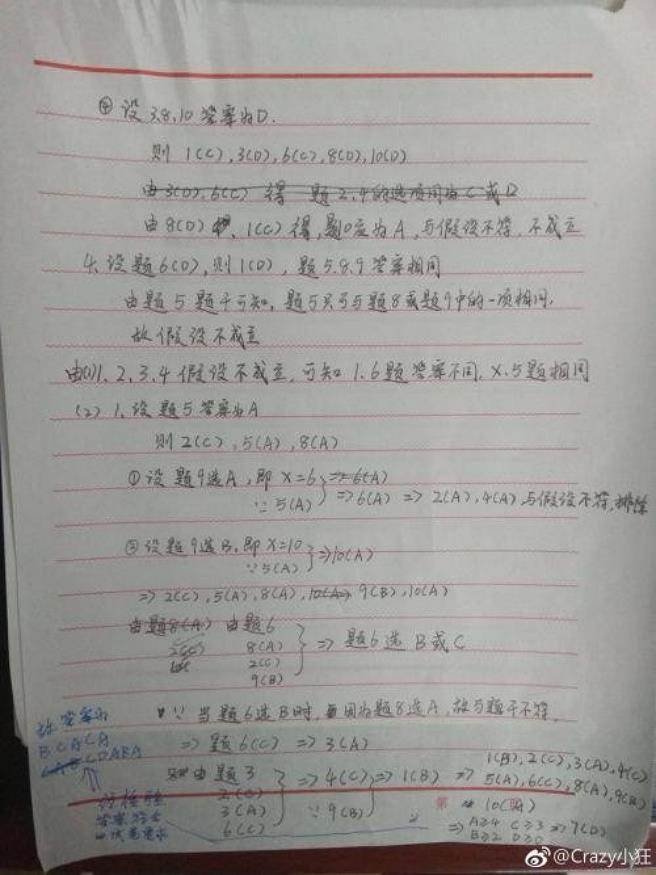 ④设3.8.10答案为D.
则 1(C), 3(D), 6(C), 8(D), 10(D)
由3(D), 6(C) 得 题2.4的选项同为C或D
由8(D) 1(C)得, 题10应为A, 与假设不符, 不成立
4. 设题6(D), 则1(D), 题5.8.9答案相同
由题5题干可知, 题5只可与题8或题9中的一项相同.
故假设不成立
由(1)1.2.3.4假设不成立, 可知1.6题答案不同. X.5题相同
(2) 1. 设题5答案为A
则2(C), 5(A), 8(A)
①设题9选A, 即X=6 ⇒6(A)
∵5(A) ⇒6(A) ⇒ 2(A), 4(A), 与假设不符, 排除
②设题9选B, 即X=10
∵5(A) ⇒10(A)
⇒ 2(C), 5(A), 8(A), 10(A) 9(B), 10(A)
由题8(A) 由题6
2(C) 8(A)
2(C)
9(B)
⇒ 题6选B或C
∵ 当题6选B时, 因为题8选A, 故与题干不符.
⇒ 题6(C) ⇒ 3(A)
则由题3
3(A)
6(C)
⇒ 4(C) ⇒ 1(B)
∵ 9(B)
⇒ 1(B), 2(C), 3(A), 4(C)
5(A), 6(C), 8(A), 9(B)
10(A)
⇒ A≥4 C≥3 ⇒ 7(D)
B≥2
故答案为
BCACA
CDABA
经检验
答案符合
@Crazy小狂